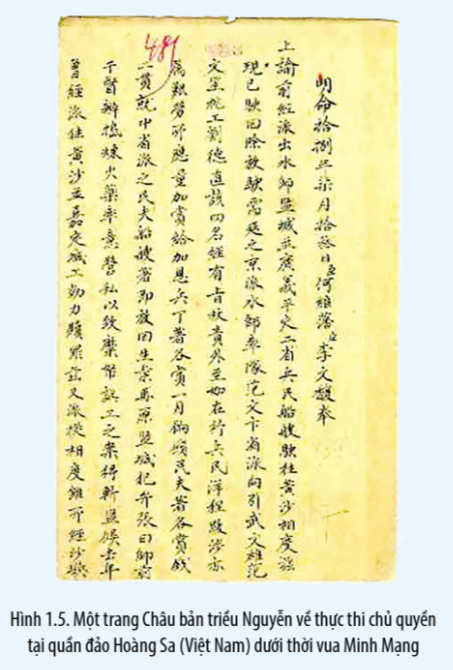 489
明命拾捌年柒月拾叁日臣何維藩臣李文馥奉
上諭前經派出水師監城並廣義平定二省兵民船艘駛往黃沙相度深
現已駛回除放駛需延之京派水師率隊范文卞省派向引武文雄范
文生桃工劉德直該四名經有旨杖責外至如在行兵民洋程跋涉亦
屬艱勞所應量加賞給加恩兵丁著各賞一月餉錢民夫著各賞錢
二貫就中省派之民夫船艘著即放回生業再原監城犯弁張曰帥前
干督辦搗煉火藥率意營私以致糜幣誤工之案得斬監候去年
曾經派往黃沙並嘉定城工効力贖罪茲又派撥相度雖所經沙嶼
Hình 1.5. Một trang Châu bản triều Nguyễn về thực thi chủ quyền
tại quần đảo Hoàng Sa (Việt Nam) dưới thời vua Minh Mạng